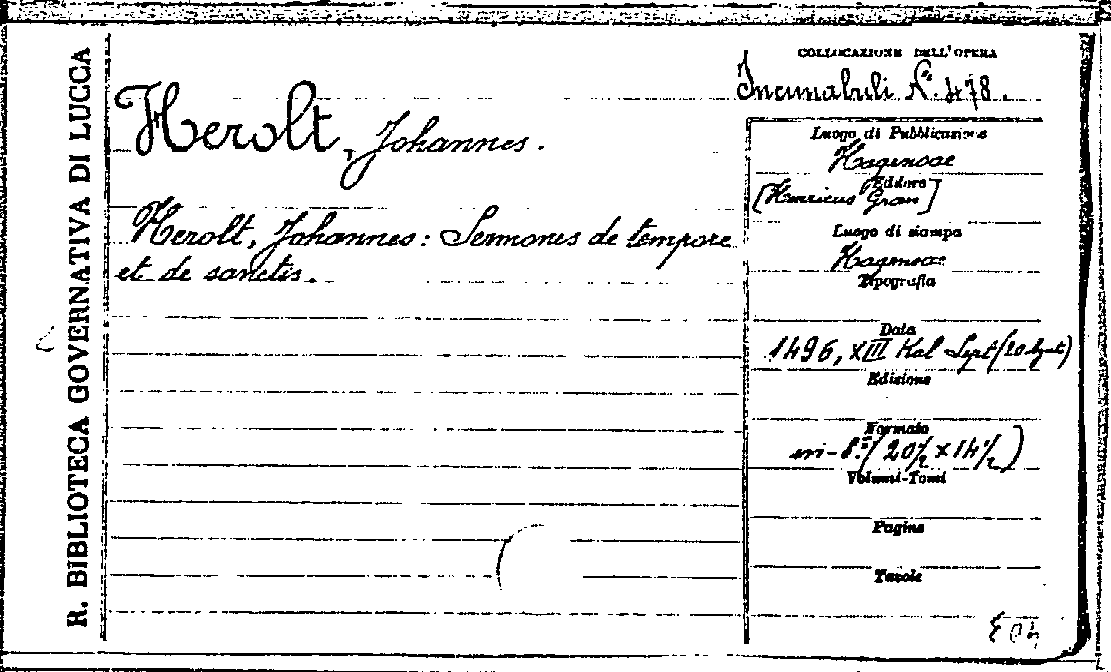 R. BIBLIOTECA GOVERNATIVA DI LUCCA
Herolt, Johannes.
Herolt, Johannes: Sermones de tempore
et de sanctis.
COLLOCAZIONE DELL'OPERA
Incunabuli N.° 478.
Luogo di Pubblicazione
Hagenoae
Editore
[Henricus Gran]
Luogo di stampa
Hagenoae
Tipografia
Data
1496, XIII Kal Sept (20 Agost)
Edizione
Formato
in-8.° (20½ x 14½)
Volumi-Tomi
Pagine
Tavole